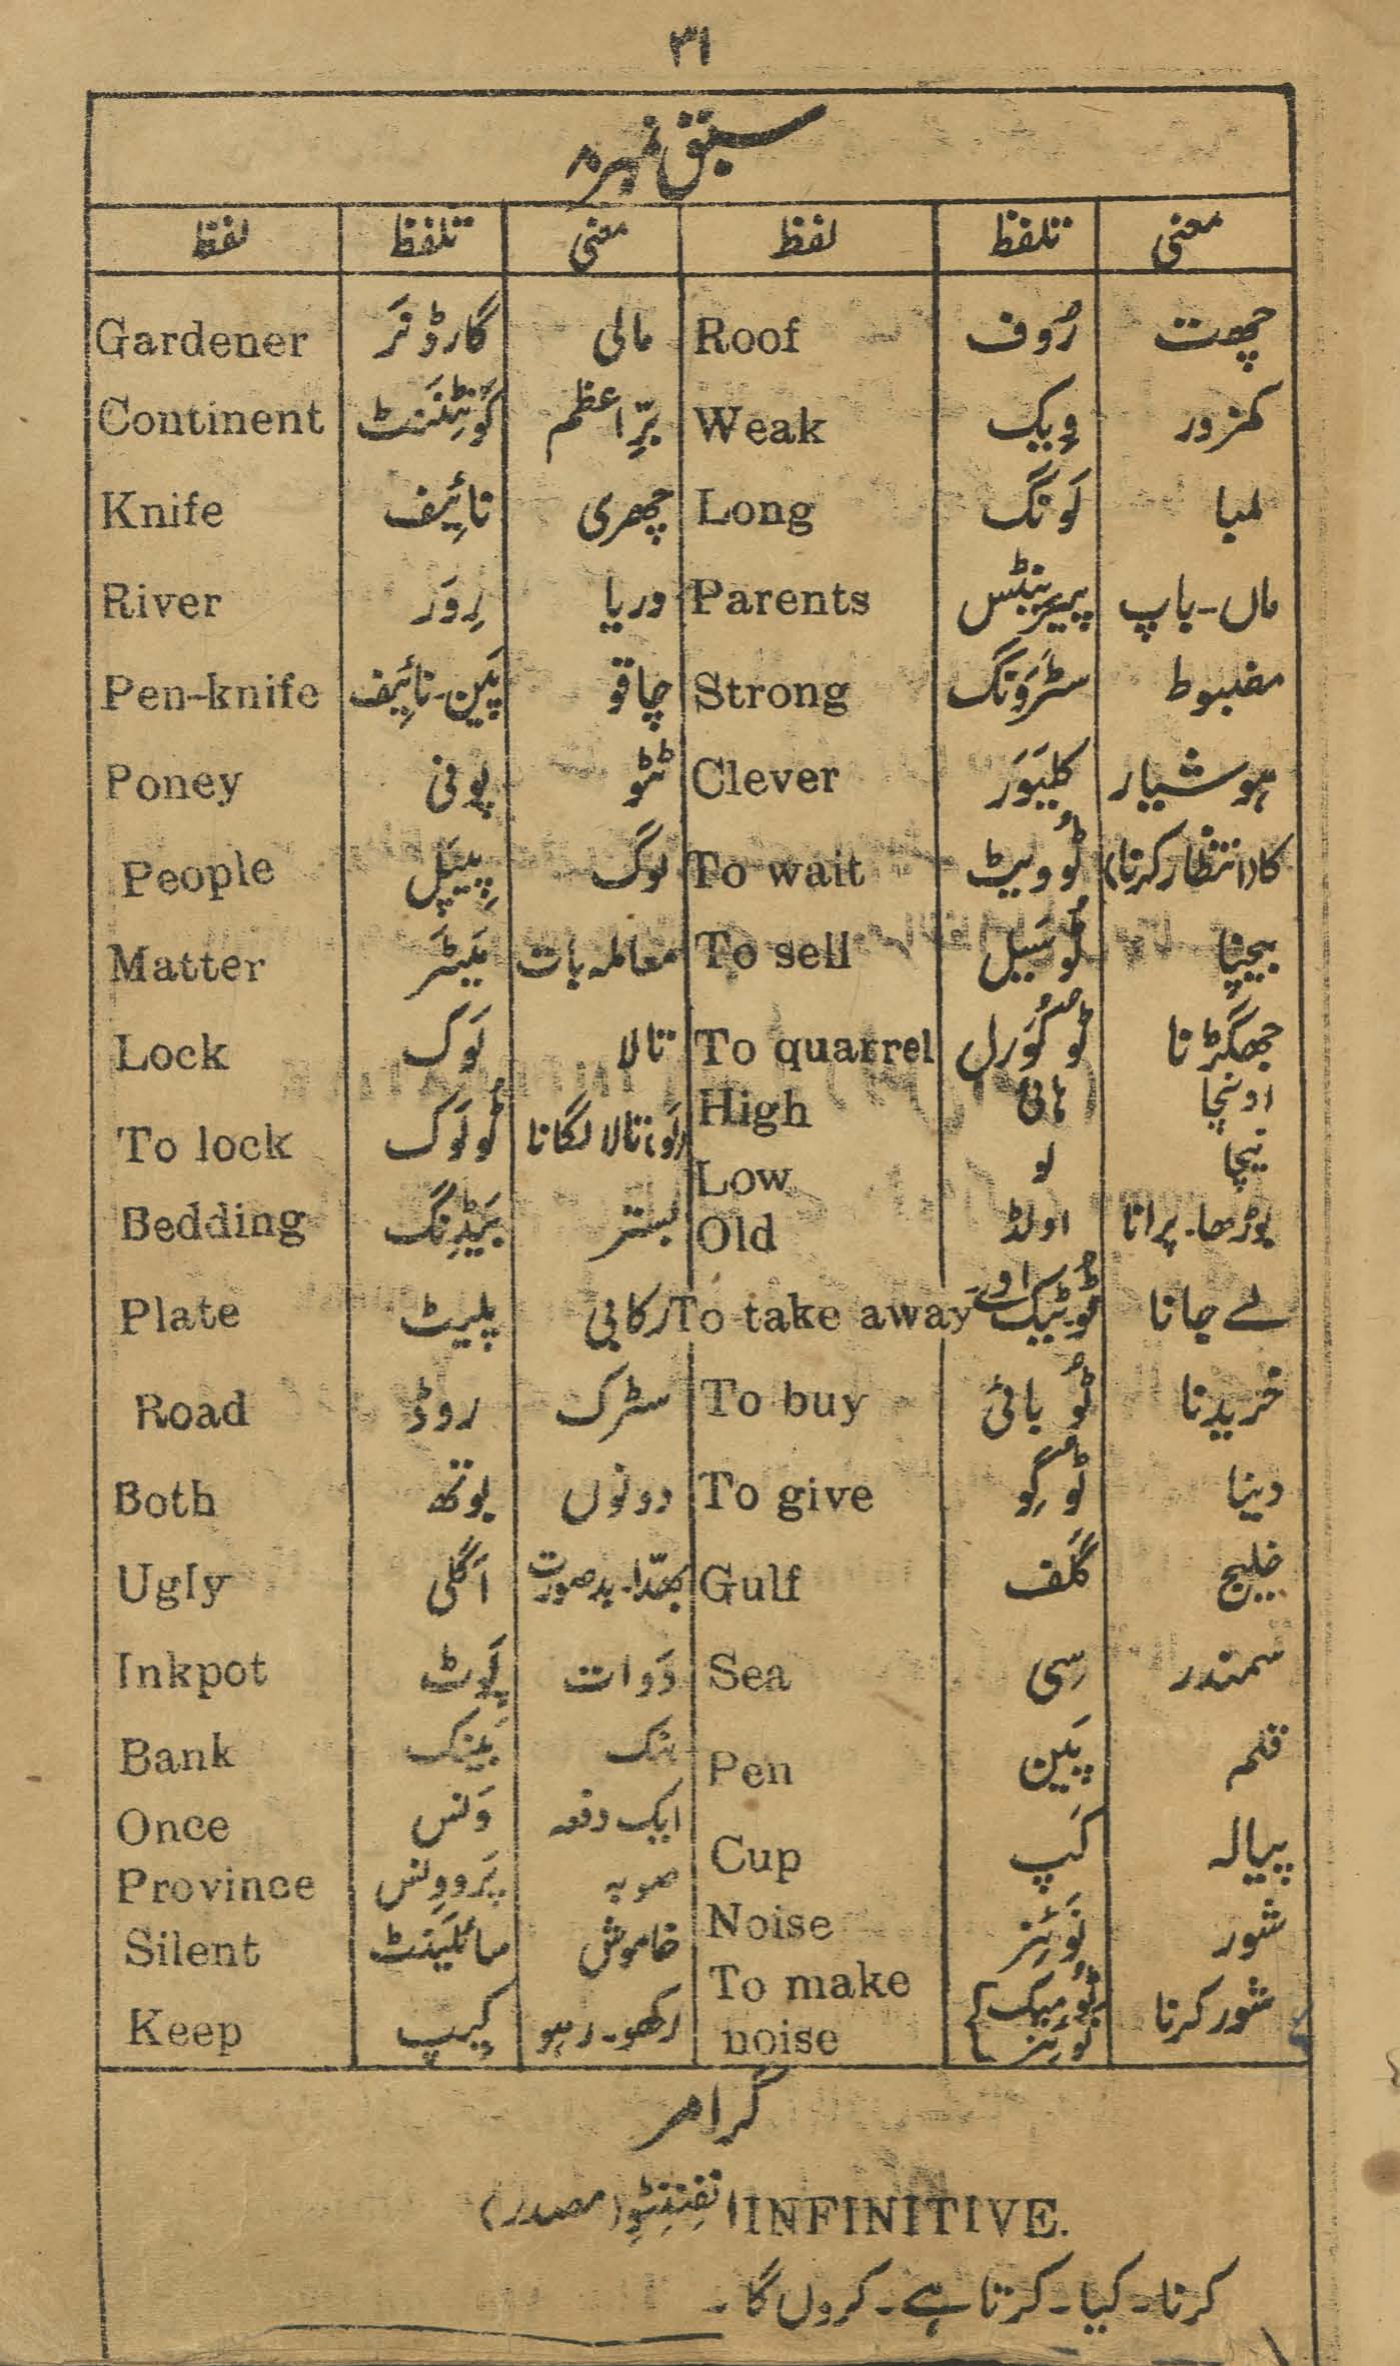 ۳۱
سبق نمبر ۸
لفظ تلفظ معنی لفظ تلفظ معنی
Gardener گارڈنَر مالی Roof رُوف چھت
Continent کَونٹِنَنٹ برِّاعظم Weak وِیک کمزور
Knife نائِیف چھری Long لَونگ لمبا
River رِوَر دریا Parents پیرینٹس ماں۔باپ
Pen-knife پَین۔نائِیف چاقو Strong سٹرَونگ مضبوط
Poney پونی ٹٹو Clever کلیوَر ہوشیار
People پِیپَل لوگ To wait ٹُو ویٹ کا(انتظار کرنا)
Matter مَیٹَر معاملہ بات To sell ٹُو سَیل بیچنا
Lock لَوک تالا To quarrel ٹُو کُوَرل جھگڑنا
High ہائی اونچا
To lock ٹُو لَوک (کو) تالا لگانا Low لو نیچا
Bedding بَیڈِنگ بستر Old اولڈ بوڑھا۔پرانا
Plate پلیٹ رکابی To take away ٹُو ٹیک اوے لے جانا
Road روڈ سڑک To buy ٹُو بائی خریدنا
Both بوتھ دونوں To give ٹُو گِو دینا
Ugly اَگلی بھدّا۔بدصورت Gulf گَلف خلیج
Inkpot پَوٹ دَوات Sea سِی سمندر
Bank بَینک بنک Pen پَین قلم
Once وَنس ایک دفعہ Cup کَپ پیالہ
Province پَرووِنس صوبہ
Silent سائلَینٹ خاموش Noise نَوئِز شور
Keep کِیپ رکھو۔رہو To make noise ٹُو میک نَوئِز شور کرنا
گرامر
INFINITIVE. انفِنِٹِو (مصدر)
کرنا۔کیا۔کرتا ہے۔کروں گا۔